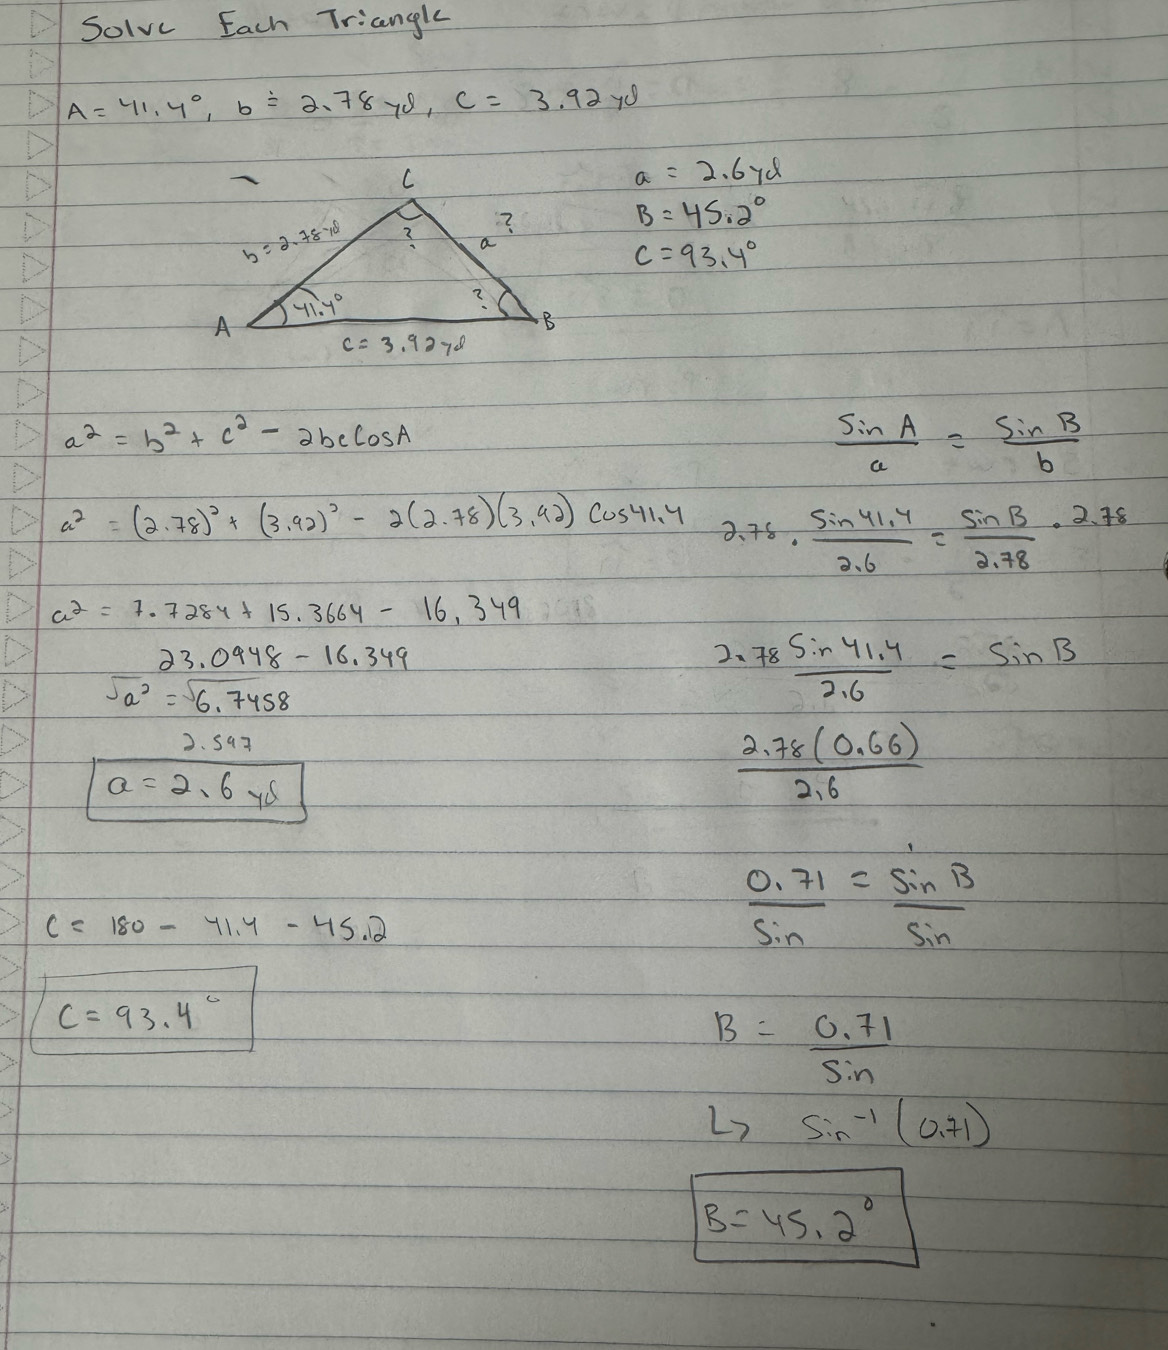 Solve Each Triangle
A = 41.4°, b = 2.78 yd, C = 3.92 yd
C
b = 2.78 yd
?
a ?
41.4°
?
A
B
C = 3.92 yd
a = 2.6 yd
B = 45.2°
C = 93.4°
a² = b² + c² - 2bc cosA
a² = (2.78)² + (3.92)² - 2(2.78)(3.92) Cos 41.4
a² = 7.7284 + 15.3664 - 16,349
23.0948 - 16.349
√a² = √6.7458
2.597
a = 2.6 yd
C = 180 - 41.4 - 45.2
C = 93.4°
Sin A / a = Sin B / b
2.78 · Sin 41.4 / 2.6 = Sin B / 2.78 · 2.78
2.78 Sin 41.4 / 2.6 = Sin B
2.78 (0.66) / 2.6
0.71 / Sin = Sin B / Sin
B = 0.71 / Sin
↳ Sin⁻¹ (0.71)
B = 45.2°